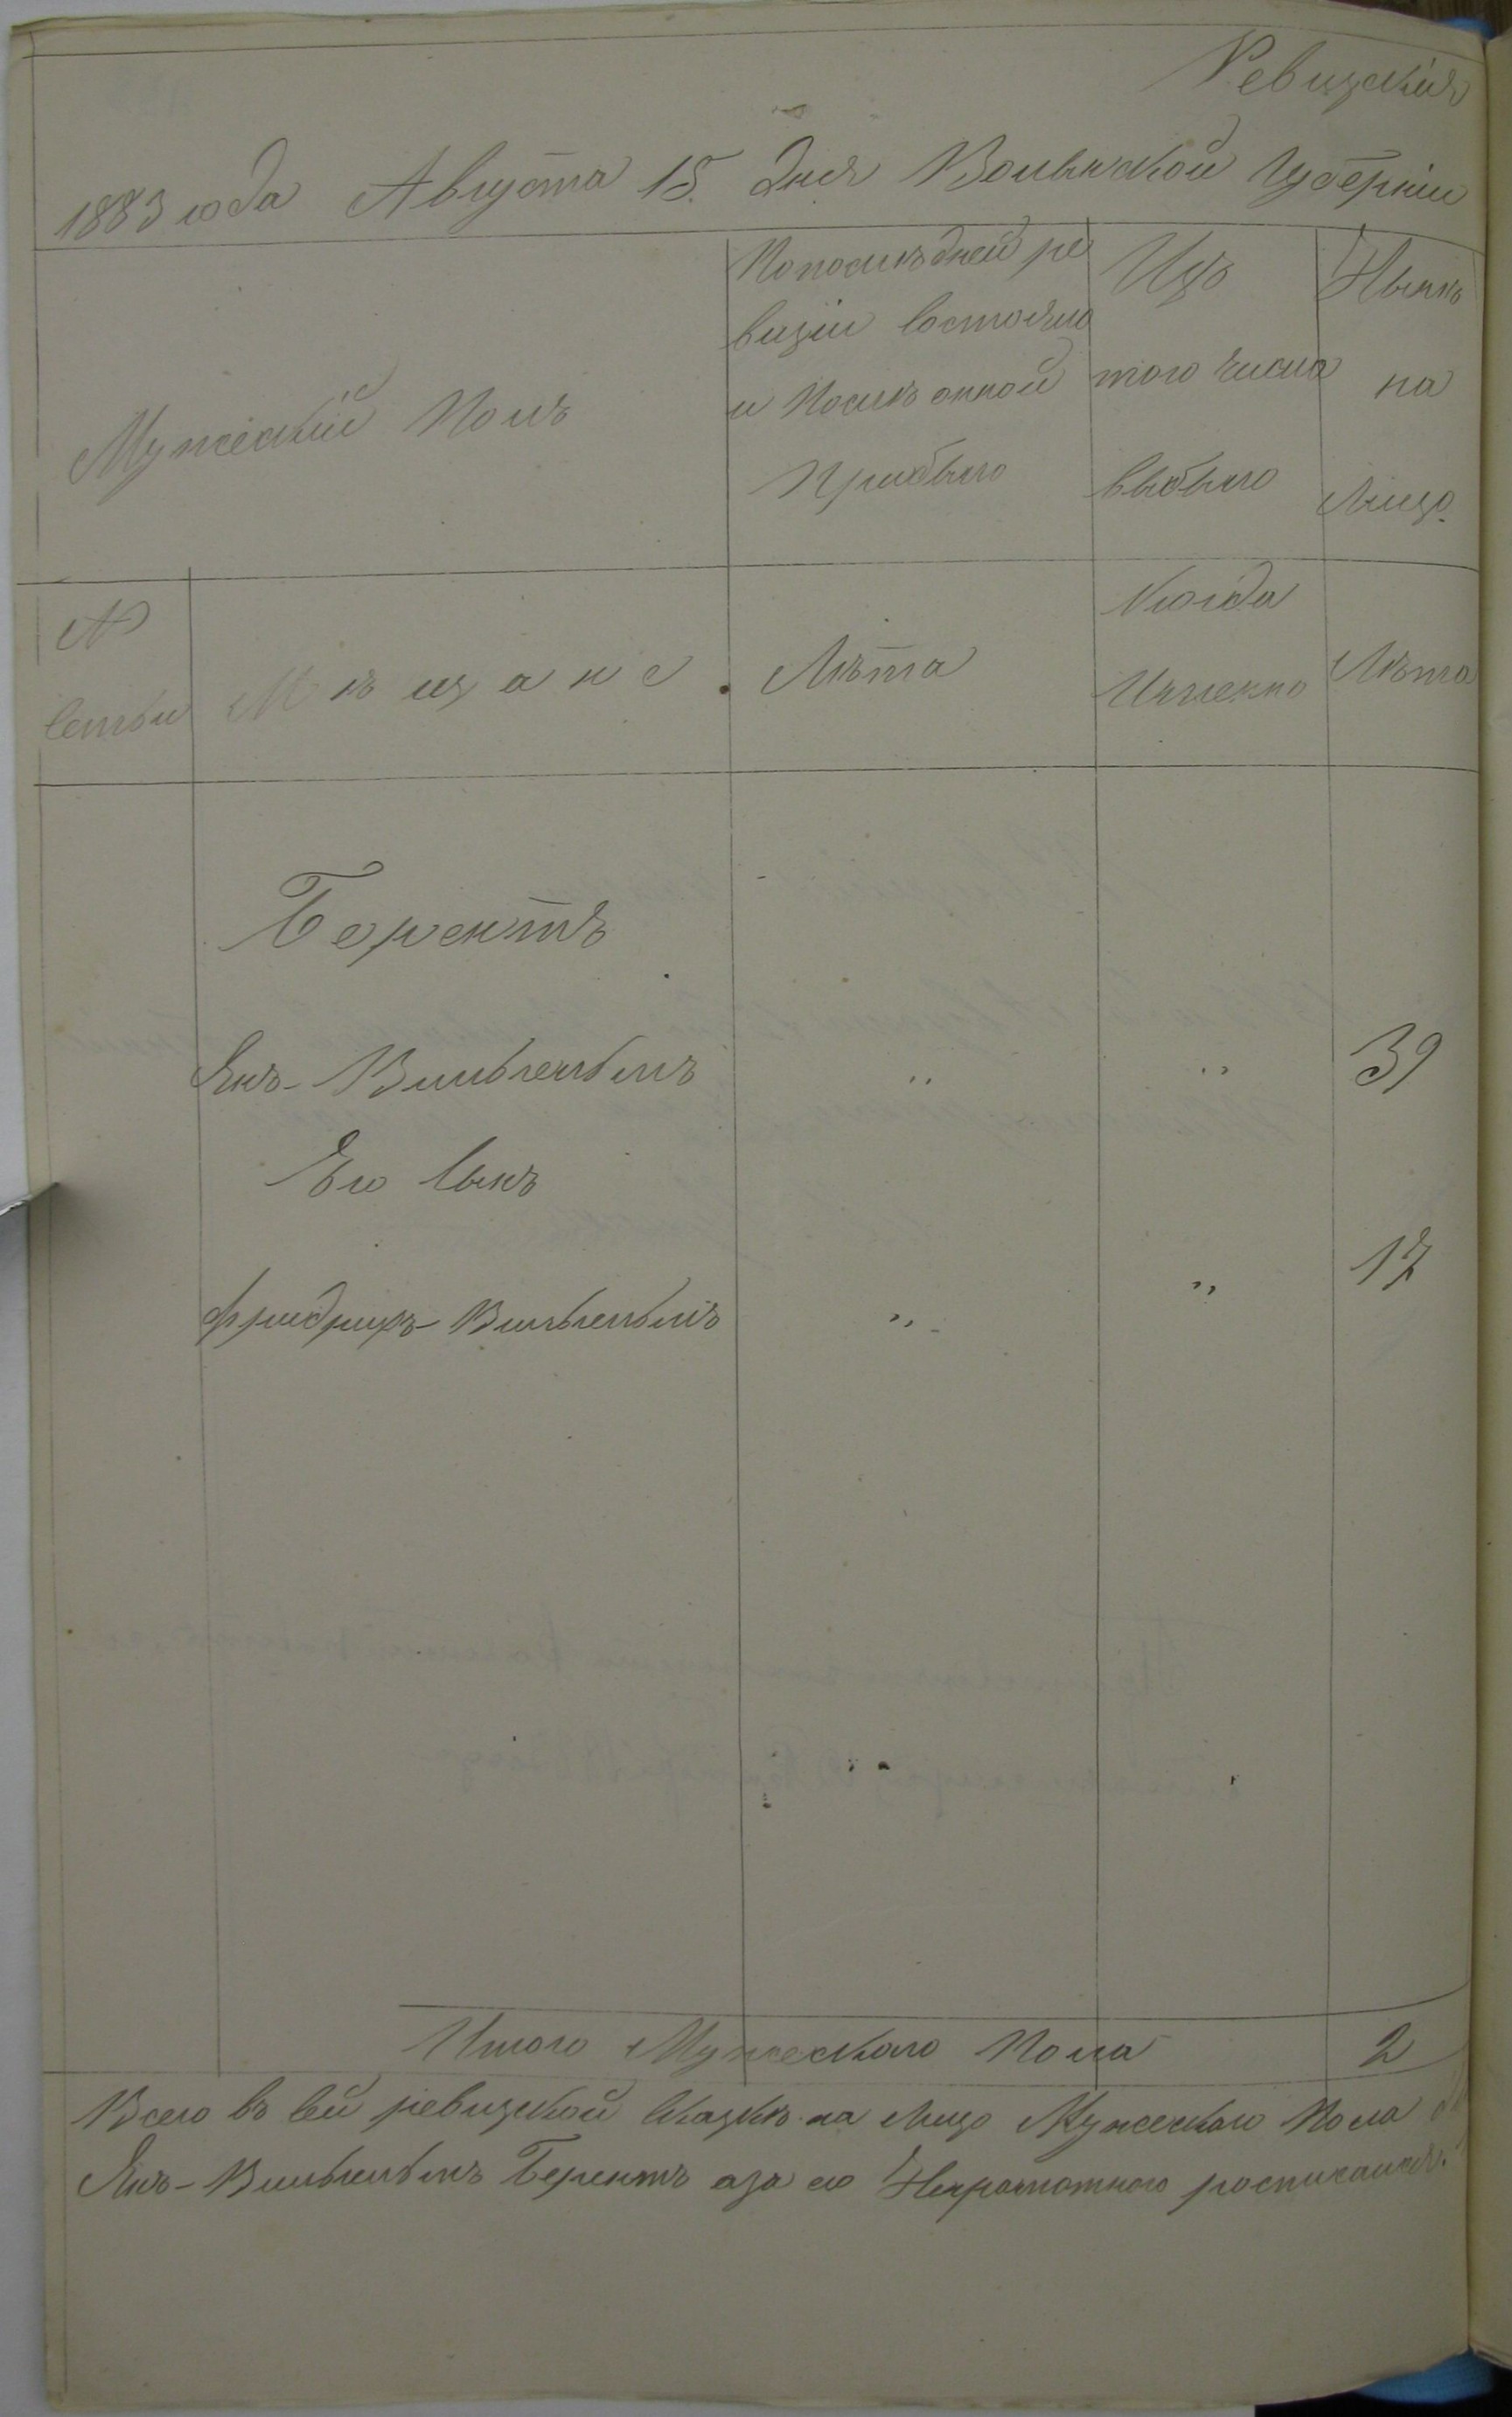 Ревизскія
1883 года Августа 15. дня Волынской Губерніи
Мужескій Полъ
Попослѣдней ре
визіи состояло
и Послѣ онной
Прибыло
Изъ
того числа
выбыло
Нынѣ
на
Лицо.
№
семьи
Мѣщане.
Лѣта
Когда
Имменно
Лѣта
Берентъ
Янъ-Вильгельмъ " " 39
Его Сынъ
Фридрихъ-Вильгельмъ " " 17
Итого Мужескаго Пола 2
Всего въ сей ревизской Сказкѣ на Лицо Мужескаго Пола
Янъ-Вильгельмъ Берентъ аза его Неграмотного росписался.